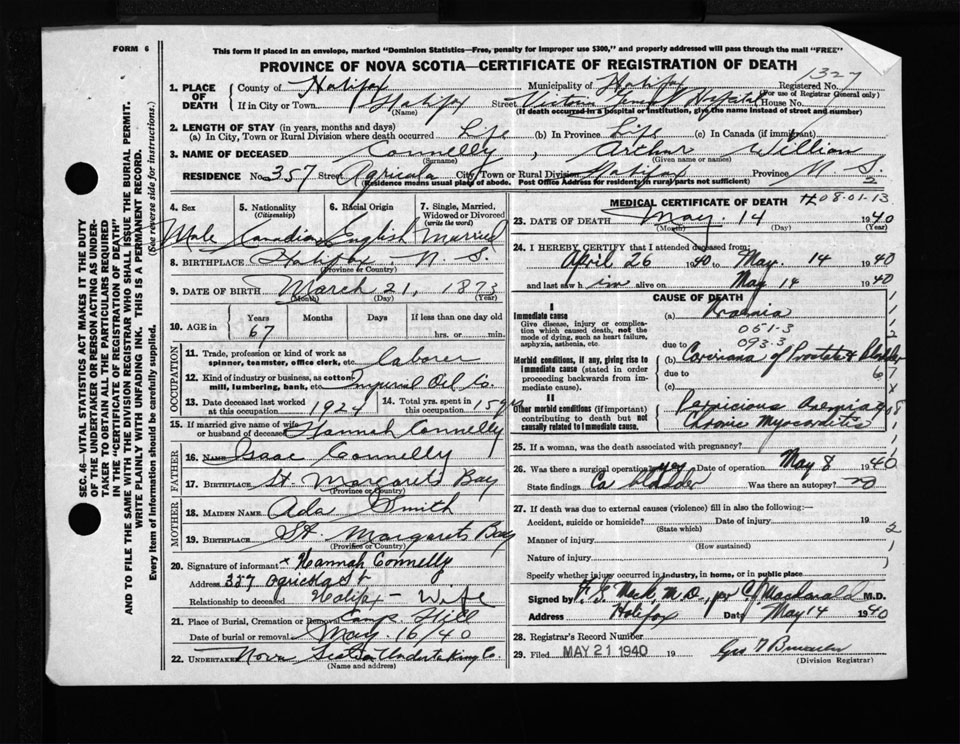 FORM 6
This form if placed in an envelope, marked "Dominion Statistics—Free, penalty for improper use $300," and properly addressed will pass through the mail "FREE"
PROVINCE OF NOVA SCOTIA—CERTIFICATE OF REGISTRATION OF DEATH
1327
1. PLACE OF DEATH
County of Halifax Municipality of Halifax Registered No.
(For use of Registrar General only)
If in City or Town Halifax Street Victoria General Hospital House No.
(Name) (If death occurred in a hospital or institution, give its name instead of street and number)
2. LENGTH OF STAY (in years, months and days)
(a) In City, Town or Rural Division where death occurred Life (b) In Province Life (c) In Canada (if immigrant)
3. NAME OF DECEASED Connelly, Arthur William
(Surname) (Given name or names)
RESIDENCE No. 357 Street Agricola City, Town or Rural Division Halifax Province N S
(Residence means usual place of abode. Post Office Address for residents in rural parts not sufficient)
4. Sex
5. Nationality (Citizenship)
6. Racial Origin
7. Single, Married, Widowed or Divorced (write the word)
Male Canadian English Married
8. BIRTHPLACE Halifax N. S.
(Province or Country)
9. DATE OF BIRTH March 21, 1873
(Month) (Day) (Year)
10. AGE in Years Months Days If less than one day old
67 hrs. or min.
OCCUPATION
11. Trade, profession or kind of work as spinner, teamster, office clerk, etc. laborer
12. Kind of industry or business, as cotton mill, lumbering, bank, etc. Imperial Oil Co.
13. Date deceased last worked at this occupation 1924
14. Total yrs. spent in this occupation 15 yrs
15. If married give name of wife or husband of deceased Hannah Connelly
FATHER
16. NAME Isaac Connelly
17. BIRTHPLACE St. Margarets Bay
(Province or Country)
MOTHER
18. MAIDEN NAME Ada Smith
19. BIRTHPLACE St. Margarets Bay
(Province or Country)
20. Signature of informant x Hannah Connelly
Address 357 Agricola St
Relationship to deceased Halifax - Wife
21. Place of Burial, Cremation or Removal Camp Hill
Date of burial or removal May 16/40
22. Undertaker Nova Scotia Undertaking Co.
MEDICAL CERTIFICATE OF DEATH
08-01-13
23. DATE OF DEATH May 14 1940
(Month) (Day) (Year)
24. I HEREBY CERTIFY that I attended deceased from:
April 26 1940 to May 14 1940
and last saw him alive on May 14 1940
CAUSE OF DEATH
I
Immediate cause (a) Uraemia
Give disease, injury or complication which caused death, not the mode of dying, such as heart failure, asphyxia, asthenia, etc.
051-3
093-3
due to
Morbid conditions, if any, giving rise to immediate cause (stated in order proceeding backwards from immediate cause).
(b) Carcinoma of Prostate & Bladder
due to
(c)
II
Other morbid conditions (if important) contributing to death but not causally related to immediate cause.
Pernicious Anemia
Chronic Myocarditis
25. If a woman, was the death associated with pregnancy?
26. Was there a surgical operation? yes Date of operation May 8 1940
State findings Ca bladder Was there an autopsy? no
27. If death was due to external causes (violence) fill in also the following:—
Accident, suicide or homicide? Date of injury 19
(State which)
Manner of injury
(How sustained)
Nature of injury
Specify whether injury occurred in industry, in home, or in public place
Signed by F. G. Mack M.D., per Macdonald M.D.
Address Halifax Date May 14 1940
28. Registrar's Record Number
29. Filed MAY 21 1940 19
(Division Registrar)
SEC. 46—VITAL STATISTICS ACT MAKES IT THE DUTY
OF THE UNDERTAKER OR PERSON ACTING AS UNDER-
TAKER TO OBTAIN ALL THE PARTICULARS REQUIRED
IN THE "CERTIFICATE OF REGISTRATION OF DEATH"
AND TO FILE THE SAME WITH THE DIVISION REGISTRAR WHO SHALL ISSUE THE BURIAL PERMIT.
WRITE PLAINLY WITH UNFADING INK. THIS IS A PERMANENT RECORD.
Every item of information should be carefully supplied. (See reverse side for instructions.)